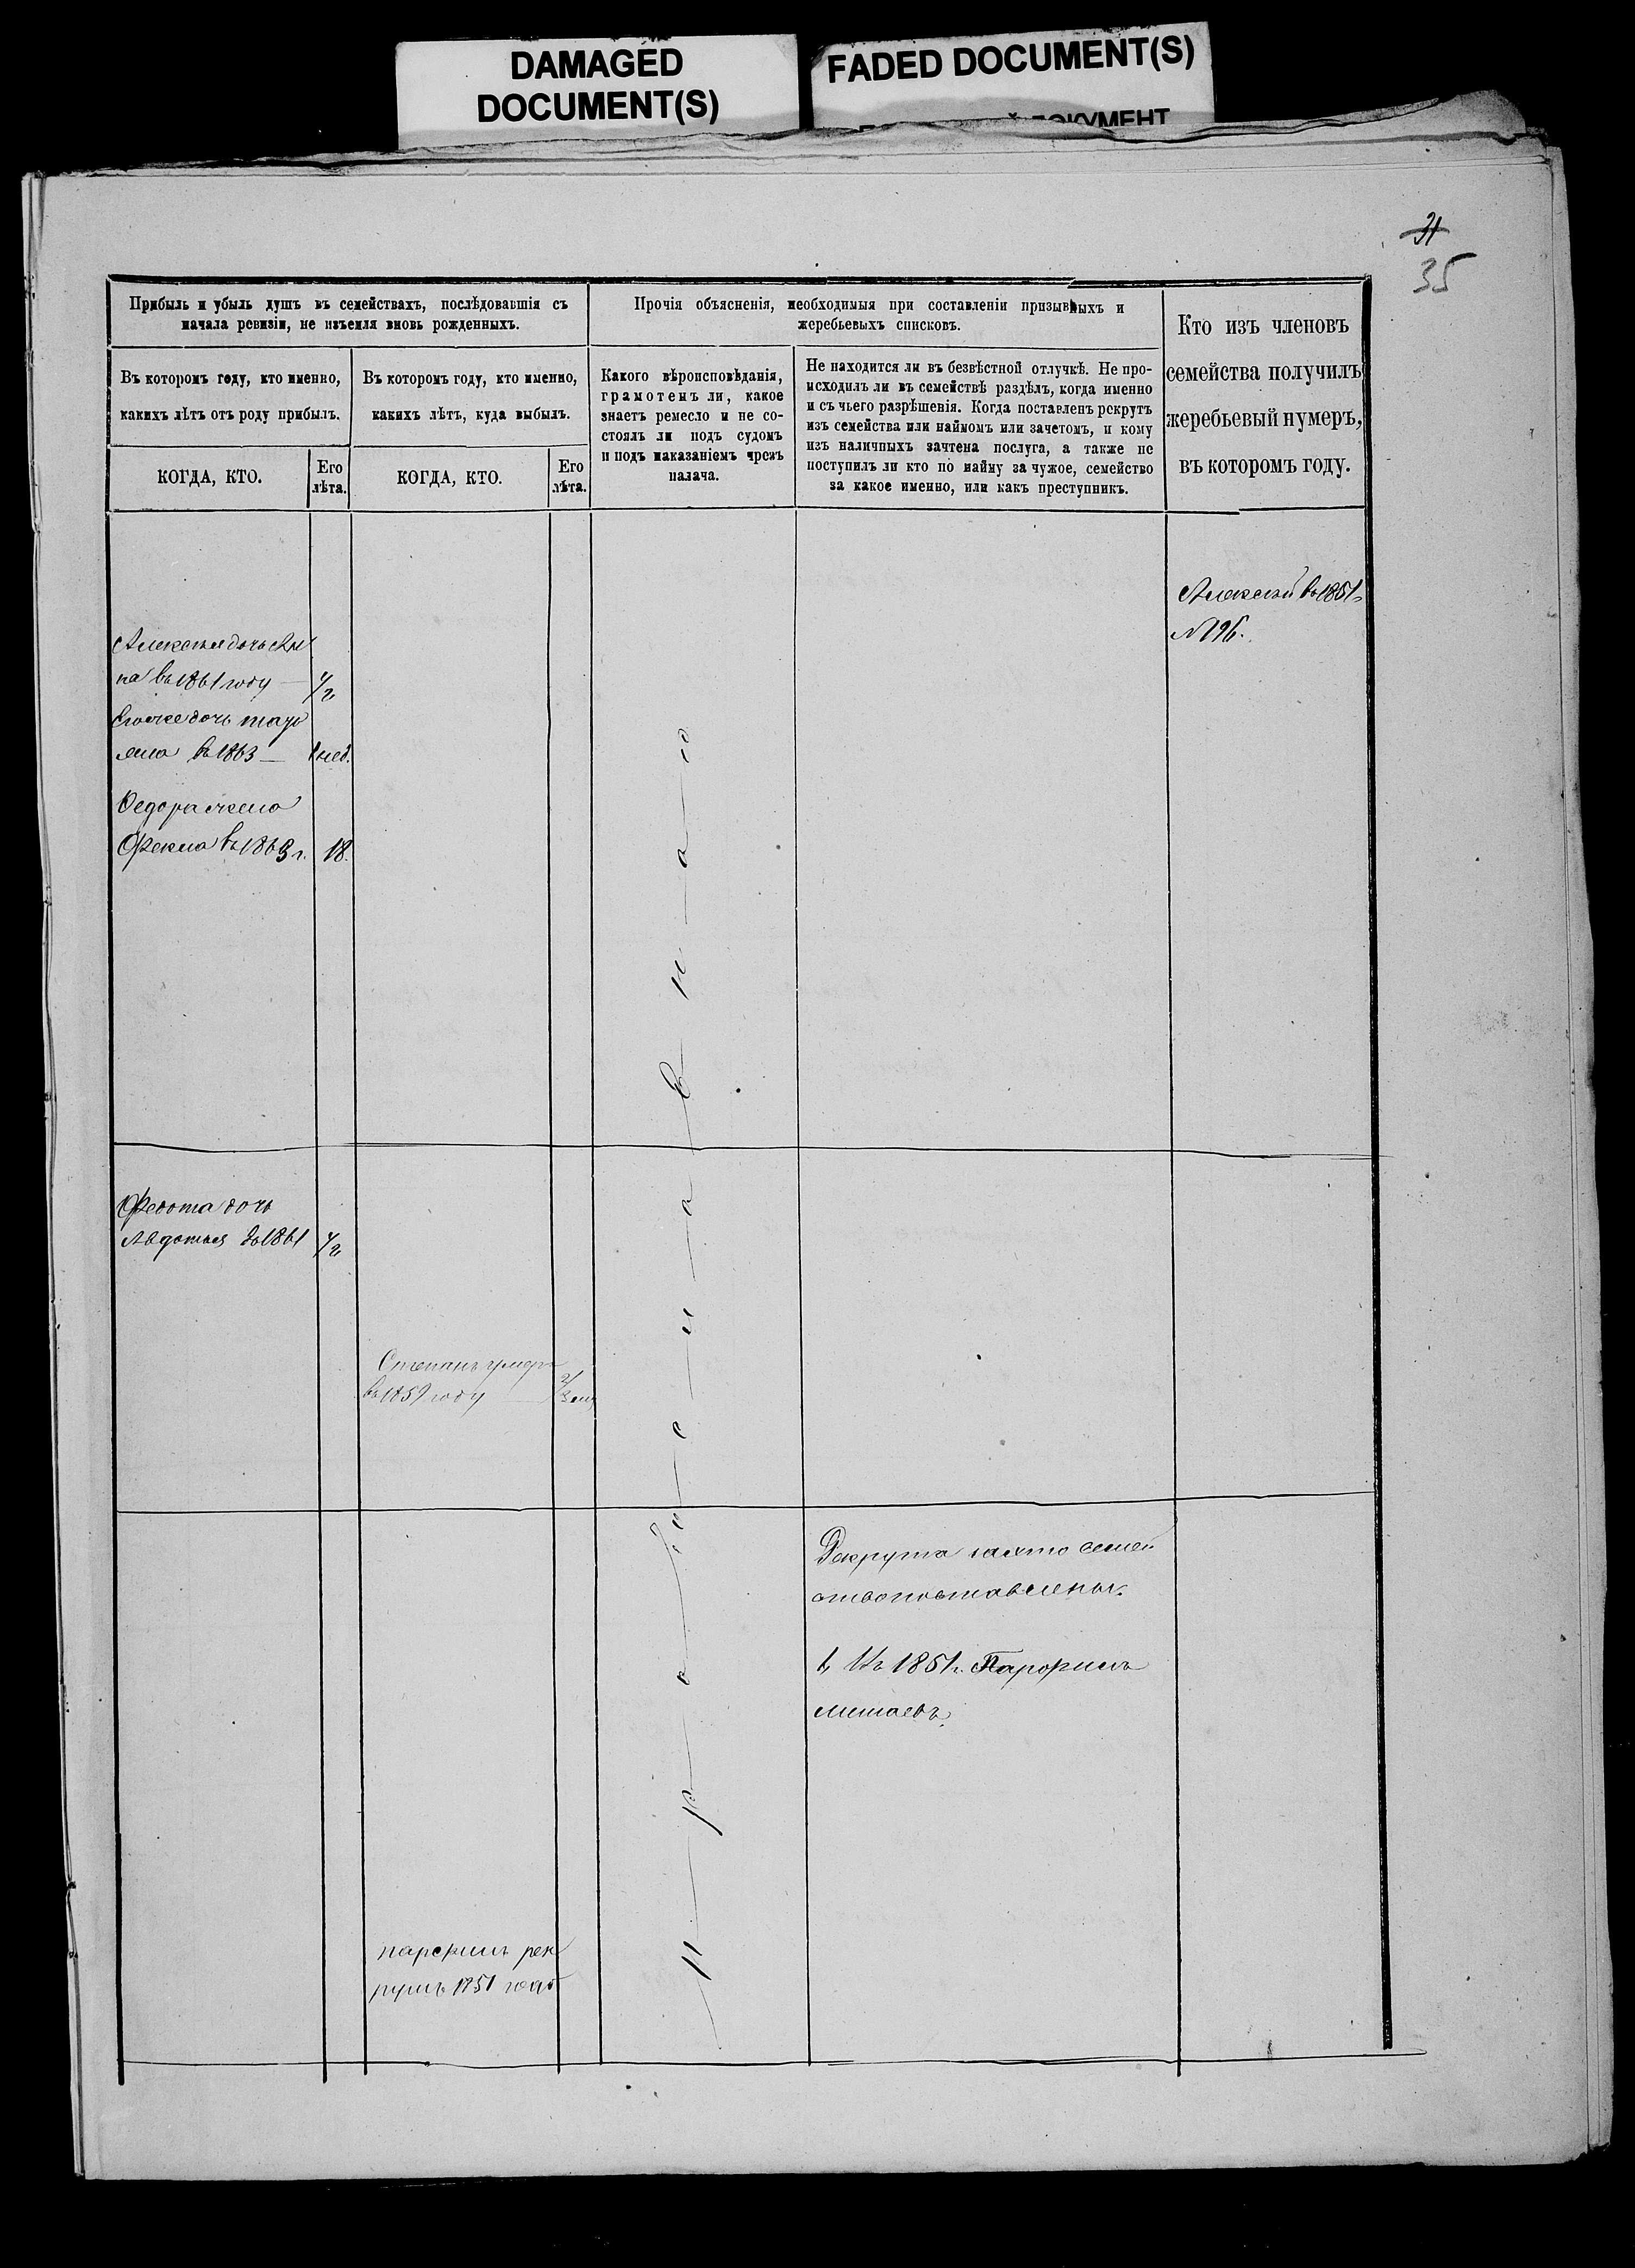 DAMAGED
DOCUMENT(S)
FADED DOCUMENT(S)
ДОКУМЕНТ
31
35
Прибыль и убыль душъ въ семействахъ, послѣдовавшія съ
начала ревизіи, не изъемля вновь рожденныхъ.
Въ которомъ году, кто именно,
какихъ лѣтъ отъ роду прибылъ.
КОГДА, КТО.
Его
лѣта.
Въ которомъ году, кто именно,
какихъ лѣтъ, куда выбылъ.
КОГДА, КТО.
Его
лѣта.
Прочія объясненія, необходимыя при составленіи призывныхъ и
жеребьевыхъ списковъ.
Какого вѣроисповѣданія,
грамотенъ ли, какое
знаетъ ремесло и не со-
стоялъ ли подъ судомъ
и подъ наказаніемъ чрезъ
палача.
Не находится ли въ безвѣстной отлучкѣ. Не про-
исходилъ ли въ семействѣ раздѣлъ, когда именно
и съ чьего разрѣшенія. Когда поставленъ рекрутъ
изъ семейства или наймомъ или зачетомъ, и кому
изъ наличныхъ зачтена послуга, а также не
поступилъ ли кто по найму за чужое, семейство
за какое именно, или какъ преступникъ.
Кто изъ членовъ
семейства получилъ
жеребьевый нумеръ,
въ которомъ году.
Алексей въ 1851г
№ 196.
Алексея дочь Ан
на въ 1861 году — 1/2
Евоже дочь
въ 1863 — 1 нед.
Федора жена
Фекла въ 1863 г. 18.
Федота дочь
Авдотья въ 1861 1/2
Степанъ умеръ
въ 1859 году
П р а в о с л а в н а г о
Рекрута семей
ство поставлены.
1, Въ 1851г. Парфилъ
парфилъ рек
рутъ 1851 года